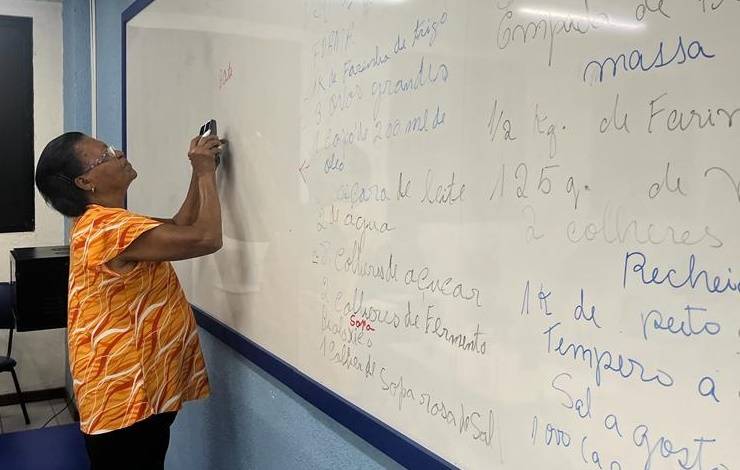 1K de Fazinha de trigo
3 ovos grandes
1 copo de 200 ml de
oleo
1 xícara de leite
2 de agua
8 Colheres de açucar
2 Colheres de Fermento
Sopa
Biologico
1 Colher de Sopa rasa de Sal
Empada de
massa
1/2 Kg. de Farin
125 g. de
2 colheres
Recheio
1K de peito
Tempero a
Sal a gosto
1 ovo